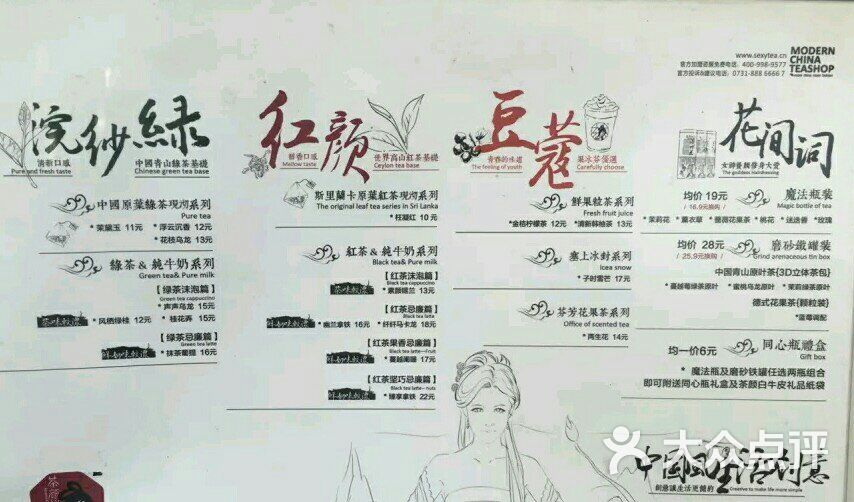 www.sexytea.cn
官方加盟咨询免费电话:400-998-9577
官方投诉&建议电话:0731-888 6666 7
MODERN
CHINA
TEASHOP
浣纱绿
清新口感
Pure and fresh taste
中國青山綠茶基礎
Chinese green tea base
中國原葉綠茶現沏系列
Pure tea
* 茉黛玉 11元 * 浮云沉香 12元
* 花枝乌龙 13元
綠茶 & 純牛奶系列
Green tea& Pure milk
【绿茶沫泡篇】
Green tea cappuccino
* 声声乌龙 15元
* 风栖绿桂 12元 * 桂花弄 15元
【绿茶忌廉篇】
Green tea latte
* 抹茶葡提 16元
红颜
醇香口感
Mellow taste
世界高山紅茶基礎
Ceylon tea base
斯里蘭卡原葉紅茶現沏系列
The original leaf tea series in Sri Lanka
* 枉凝红 10 元
紅茶 & 純牛奶系列
Black tea& Pure milk
【红茶沫泡篇】
Black tea cappuccino
* 素颜锡兰 13元
【红茶忌廉篇】
Black tea latte
* 幽兰拿铁 16元 * 纤纤马卡龙 18元
【红茶果香忌廉篇】
Black tea latte—fruit
* 蔓越阑珊 17元
【红茶坚巧忌廉篇】
Black tea latte—nuts
* 臻享拿铁 22元
豆蔻
青春的味道
The feeling of youth
果冰茶優選
Carefully choose
鮮果粒茶系列
Fresh fruit juice
* 金桔柠檬茶 12元 * 清新韩柚茶 13元
塞上冰封系列
Icea snow
* 子时雪芒 17元
芬芳花果茶系列
Office of scented tea
* 再生花 14元
花间词
女神養顏發身大堂
The goddess roodressing
均价 19元
/ 16.9元换购 /
魔法瓶装
Magic bottle of tea
* 茉莉花 * 薰衣草 * 蔷薇花果茶 * 桃花 * 迷迭香 * 玫瑰
均价 28元
/ 25.9元换购 /
磨砂鐵罐装
Grind arenaceous tin box
中国青山原叶茶{3D立体茶包}
* 蔓越莓绿茶原叶 * 蜜桃乌龙原叶 * 茉莉绿茶原叶
德式花果茶{颗粒装}
* 蓝莓调配
均一价6元
同心瓶禮盒
Gift box
* 魔法瓶及磨砂铁罐任选两瓶组合
即可附送同心瓶礼盒及茶颜白牛皮礼品纸袋
中國風生活创意
創意讓生活更簡約
Creative to make life more simple
大众点评